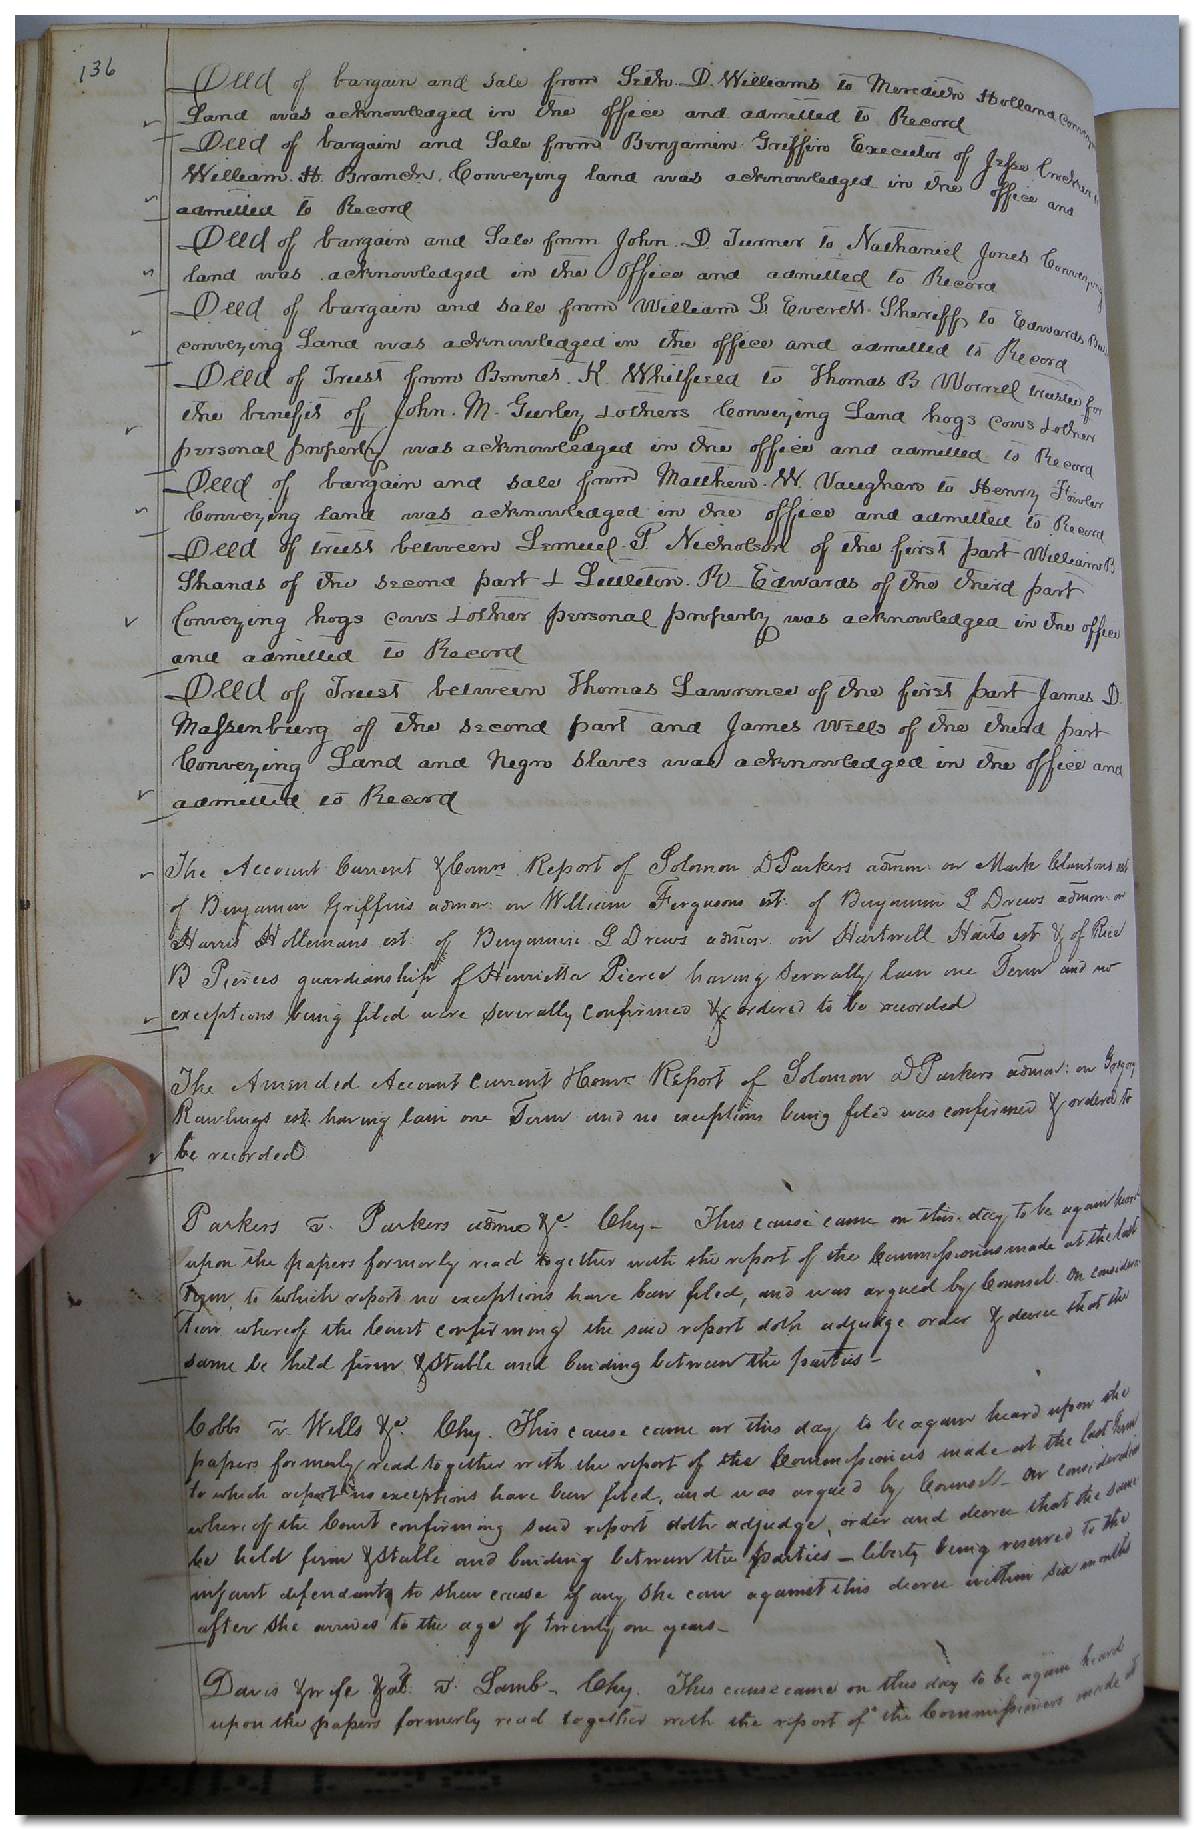 136
Deed of bargain and sale from Seth. D. Williams to Meredith Holland
Land was acknowledged in the office and admitted to Record
Deed of bargain and Sale from Benjamin Griffin Executor of Jesse
William. H. Branch. Conveying land was acknowledged in the office and
admitted to Record
Deed of bargain and Sale from John. D. Turner to Nathaniel Jones Conveying
land was acknowledged in the office and admitted to Record
Deed of bargain and sale from William G. Everett Sheriff to Edwards
conveying Land was acknowledged in the office and admitted to Record
Deed of Trust from Bennet. K. Whitfield to Thomas B Worrell trustee for
the benefit of John. M. Gurley & others Conveying Land hogs cows & other
personal property was acknowledged in the office and admitted to Record
Deed of bargain and sale from Matthew. W. Vaughan to Henry Fowler
Conveying land was acknowledged in the office and admitted to Record
Deed of trust between Lemuel. P. Nicholson of the first part William B
Shands of the second part & Littleton. R Edwards of the third part
Conveying hogs cows & other personal property was acknowledged in the office
and admitted to Record
Deed of Trust between Thomas Lawrence of the first part James D.
Massenburg of the second part and James Wells of the third part
Conveying Land and Negro Slaves was acknowledged in the office and
admitted to Record
The Account Current & Comrs Report of Solomon D Parkers admor. on Mark Clantons est
of Benjamin Griffins admor. on William Fergusons est. of Benjamin G Drews admor. on
Harris Hollemans est. of Benjamin G Drews admor on Hartwell Harts est & of Rice
B Pierces guardianship of Henrietta Pierce having severally lain one Term and no
exceptions being filed were severally confirmed & ordered to be recorded
The Amended Account current & Comrs Report of Solomon D Parkers admor. on Gregory
Rawlings est. having lain one Term and no exceptions being filed was confirmed & ordered to
be recorded
Parkers v. Parkers admor &c. Chy- This cause came on this day to be again heard
upon the papers formerly read together with the report of the Commissioners made at the last
Term, to which report no exceptions have been filed, and was argued by Counsel. On considera-
tion whereof the Court confirming the said report doth adjudge order & decree that the
same be held firm & stable and binding between the parties-
Cobbs v. Wells &c. Chy. This cause came on this day to be again heard upon the
papers formerly read together with the report of the Commissioners made at the last term
to which report no exceptions have been filed, and was argued by Counsel. On consideration
whereof the Court confirming said report doth adjudge, order and decree that the same
be held firm & stable and binding between the parties - liberty being reserved to the
infant defendant to shew cause if any she can against this decree within six months
after she arrives to the age of twenty one years-
Davis & wife & al. v. Lamb- Chy. This cause came on this day to be again heard
upon the papers formerly read together with the report of the Commissioners made at